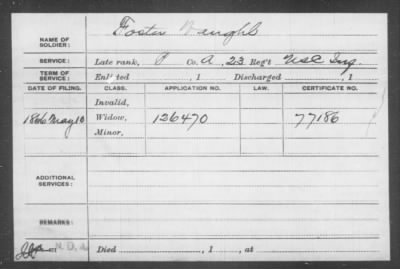 NAME OF SOLDIER: Foster
SERVICE: Late rank, P Co. A, 23 Reg't USC Inf.
TERM OF SERVICE: Enlisted , 1 Discharged , 1
DATE OF FILING. CLASS. APPLICATION NO. LAW. CERTIFICATE NO.
Invalid,
1866 May 10 Widow, 126470 77186
Minor,
ADDITIONAL SERVICES:
REMARKS:
Died , 1 , at